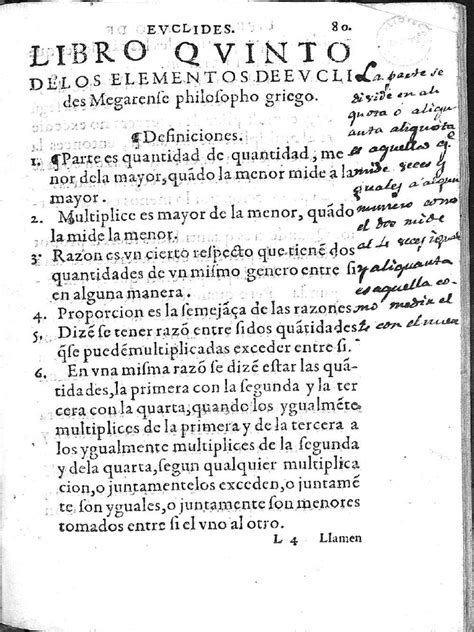 EVCLIDES. 80.
LIBRO QVINTO
DELOS ELEMENTOS DE EVCLI
des Megarense philosopho griego.
¶Definiciones.
1. ¶Parte es quantidad de quantidad, me
nor dela mayor, quãdo la menor mide a la
mayor.
2. Multiplice es mayor de la menor, quãdo
la mide la menor.
3. Razon es vn cierto respecto que tienẽ dos
quantidades de vn mismo genero entre si
en alguna manera.
4. Proporcion es la semejãça de las razones
5. Dizẽ se tener razõ entre si dos quãtidades
q̃ se puedẽ multiplicadas exceder entre si.
6. En vna misma razõ se dizẽ estar las quã-
tidades, la primera con la segunda y la ter
cera con la quarta, quando los ygualmẽte
multiplices de la primera y de la tercera a
los ygualmente multiplices de la segunda
y dela quarta, segun qualquier multiplica
cion, o juntamente los exceden, o juntamẽ
te son yguales, o juntamente son menores
tomados entre si el vno al otro.
L 4 Llamen
La parte se
divide en ali
quota ò aliq
uanta aliquota
es aquella q̃
mide veces y
guales a algun
numero como
el dos mide
al 4 veces iguales
y aliquanta
es aquella co
mo medir el
con el nueve